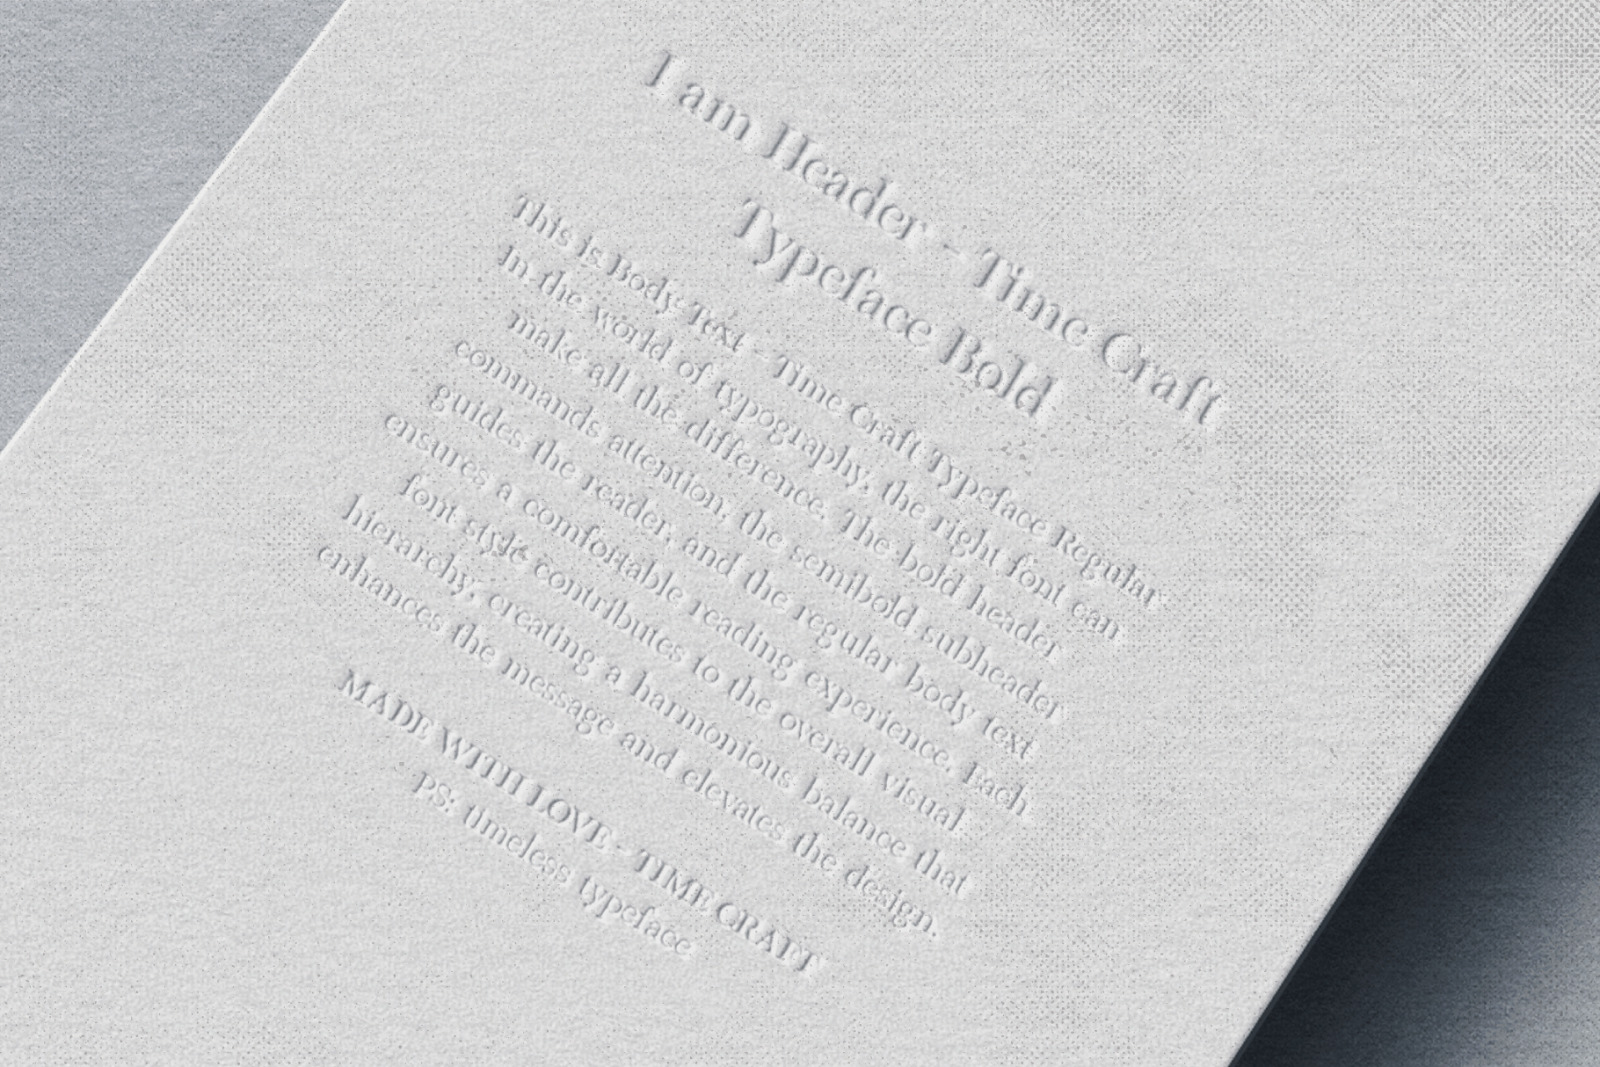 I am Header - Time Craft
Typeface Bold
This is Body Text - Time Craft Typeface Regular
In the world of typography, the right font can
make all the difference. The bold header
commands attention, the semibold subheader
guides the reader, and the regular body text
ensures a comfortable reading experience. Each
font style contributes to the overall visual
hierarchy, creating a harmonious balance that
enhances the message and elevates the design.
MADE WITH LOVE - TIME CRAFT
PS: timeless typeface